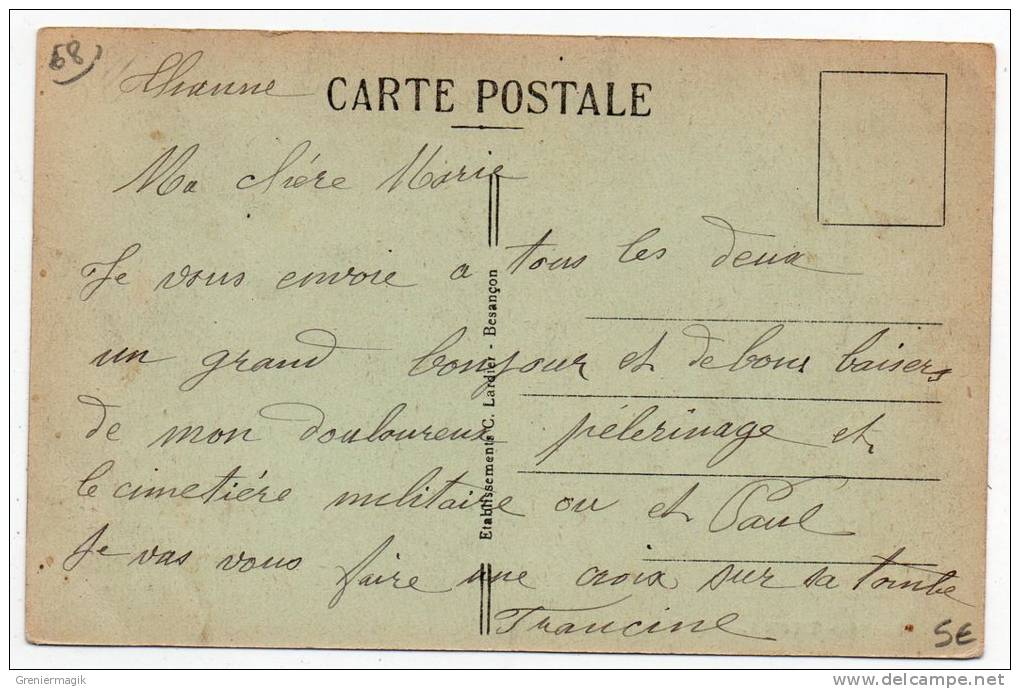 68
Thanne
CARTE POSTALE
Ma chére Marie
Je vous envoie a tous les deux
un grand bonjour et de bons baisers
de mon douloureux pélerinage et
le cimetiére militaire ou et Paul
Je vas vous faire une croix sur sa tombe
Francine
Etablissements C. Lardier - Besançon
5€
Greniermagik
www.delcampe.net